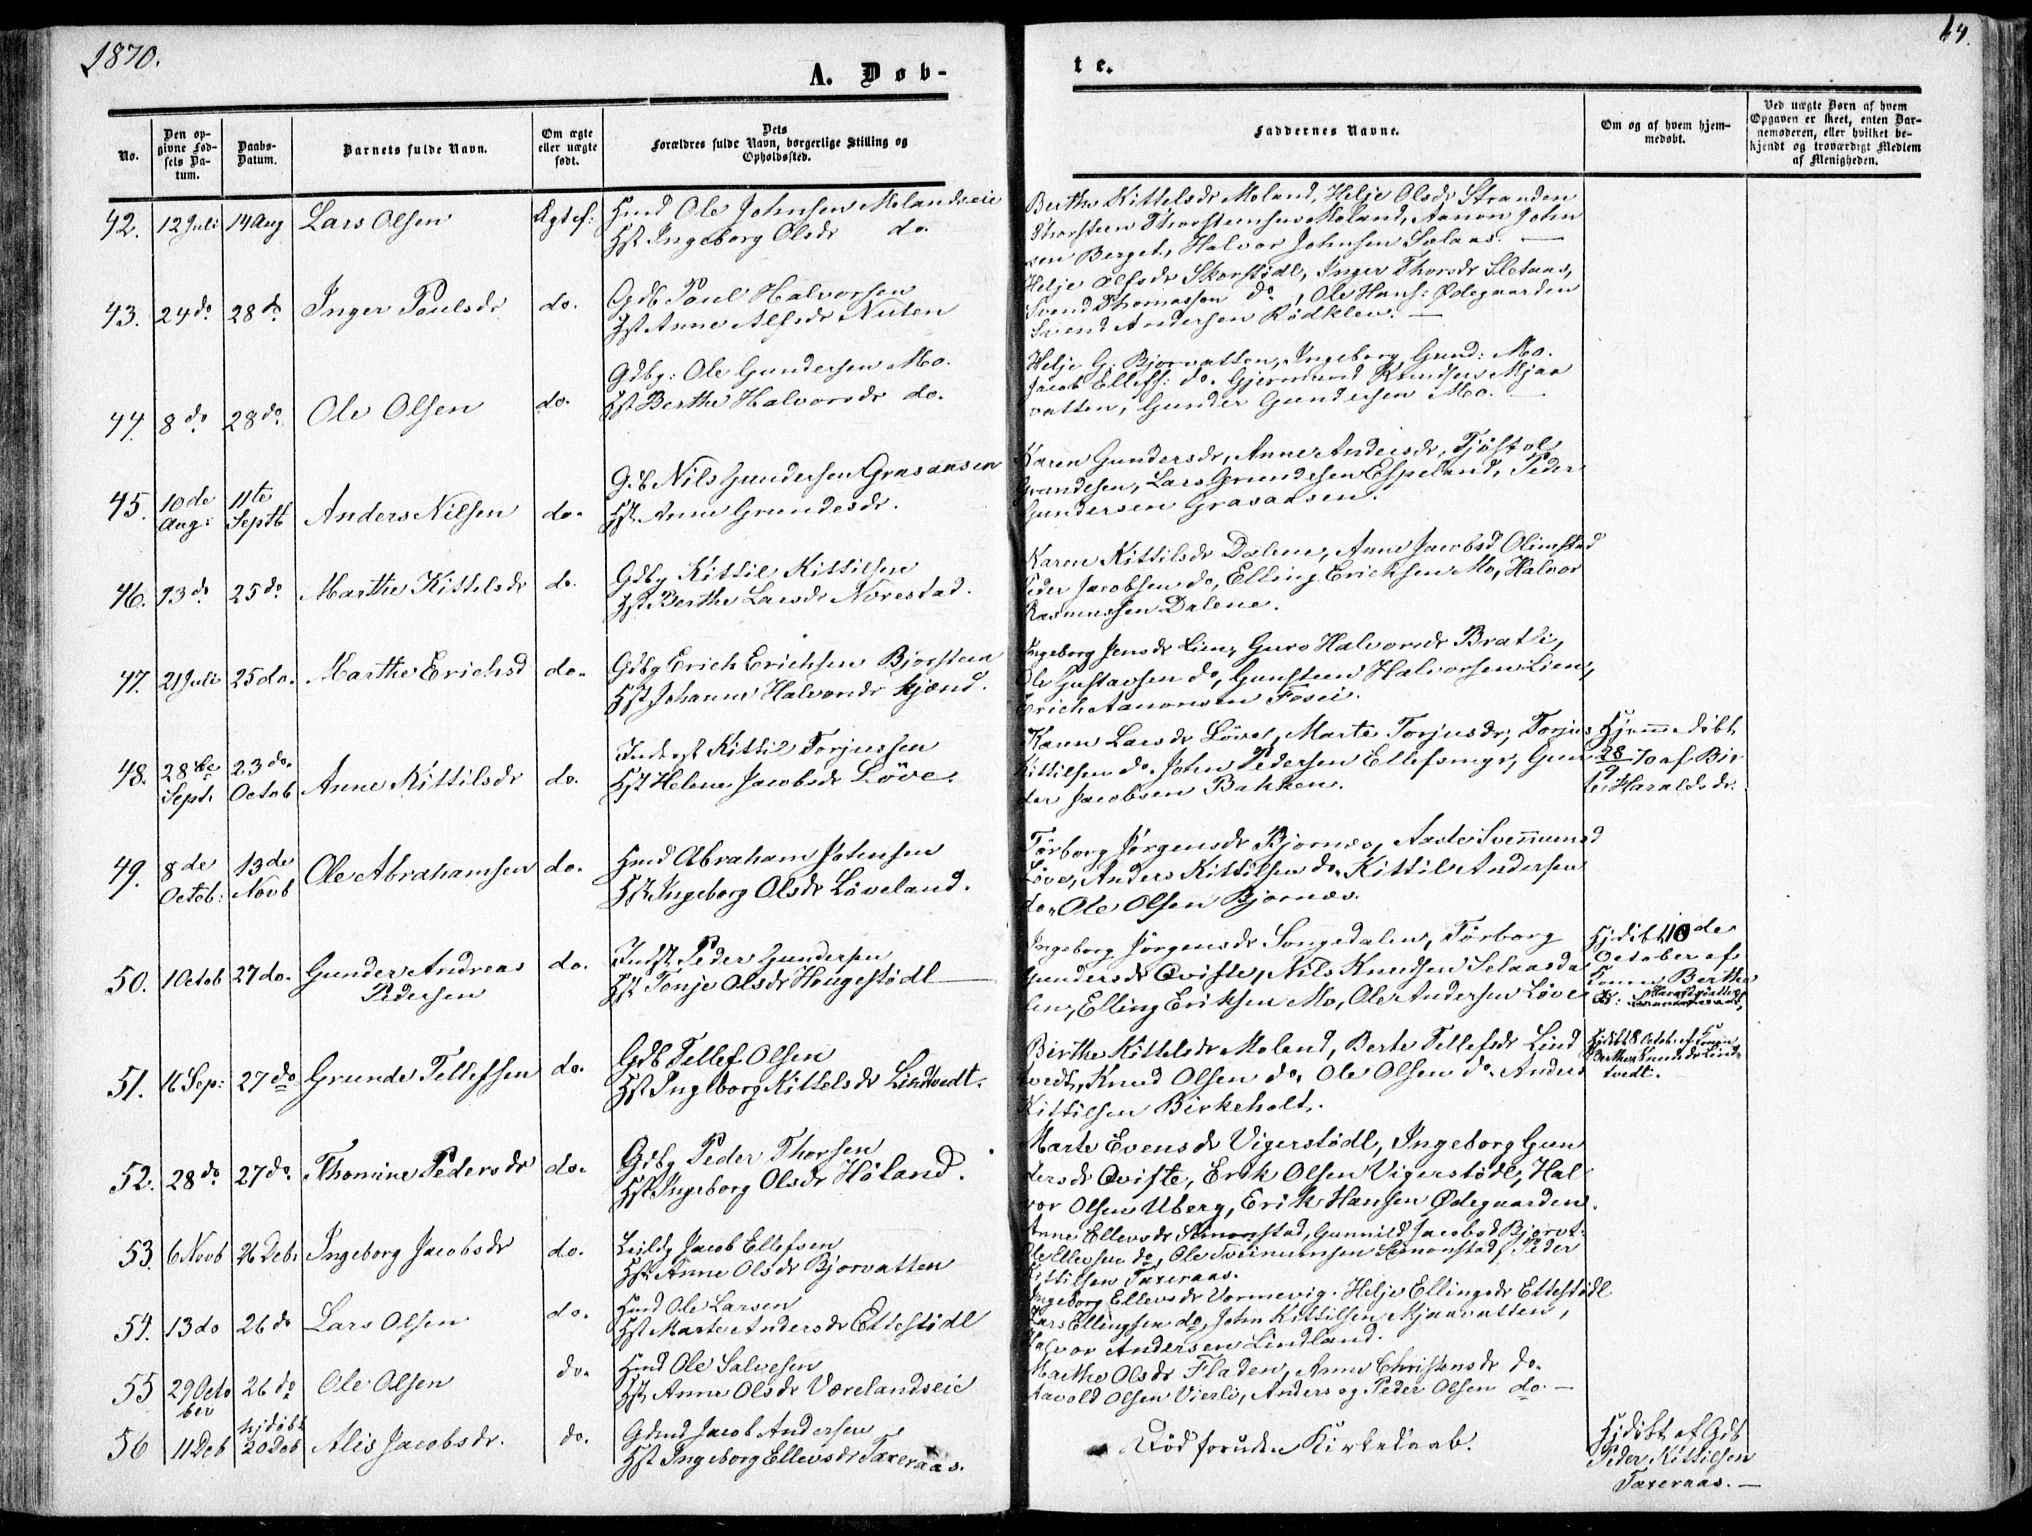 1870.
64.
A. Døb-
te.
No.
Den op-
givne Fød-
sels Da-
tum.
Daabs-
Datum.
Barnets fulde Navn.
Om ægte
eller uægte
født.
Dets
Forældres fulde Navn, borgerlige Stilling og
Opholdssted.
Faddernes Navne.
Om og af hvem hjem-
medøbt.
Ved uægte Børn af hvem
Opgaven er skeet, enten Bar-
nemoderen, eller hvilket be-
kjendt og troværdigt Medlem
af Menigheden.
42. 12 Juli 14 Aug Lars Olsen Ægtef: Hmd Ole Johnsen Molandseie
Hst Ingeborg Olsdr do.
Berthe Kittelsdr Moland, Helje Olsdr Stranden
Thorsteen Thorsteensen Moland, Aanon John
sen Berget, Halvor Johnsen Sølaas. —
43. 24 do. 28 do Inger Poulsdr do. Ggdb Poul Halvorsen
Hst Anne Alfsdr Nuten
Helje Olfsdr Skorstødl, Inger Thorsdr Sletaas,
Svend Thomassen do, Ole Hans: Ødegaarden
Svend Andersen Rødklev. —
44. 8 do 28 do. Ole Olsen do. Gdbg: Ole Gundersen Mo.
Hst Berthe Halvorsdr do.
Helje G. Bjorvatten, Ingeborg Gund: Mo.
Jacob Ellefs: do. Gjermund Knudsen Mjaa
vatten, Gunder Gundersen Mo. —
45. 10de Aug: 11te Septb Anders Nilsen do. Gdb Nils Gundersen Grasaasen
Hst Anne Grundesdr.
Karen Gundersdr, Anne Andersdr, Tjøstol
Grundesen, Lars Grundesen Espeland, Peder
Gundersen Grasaasen.
46. 13 do. 25 do. Marthe Kittelsdr do. Gdbg Kittil Kittilsen
Hst Berthe Larsdr Norestad.
Karen Kittilsdr Dalene, Anne Jacobsd Olimstad
Peder Jacobsen do, Elling Ericksen Mo, Halvor
Rasmussen Dalene.
47. 21 Juli 25 do. Marthe Erichsd do. Gdbg Erich Erichsen Bjorsteen
Hst Johanne Halvorsdr kjend.
Ingeborg Jensdr Lien, Guro Halvorsdr Bratli,
Ole Gustavsen do, Gunsteen Halvorsen Lien,
Erich Aanonsen Fosie.
48. 28de Sept. 23 do. Octob Anne Kittilsdr do. Inderst Kittil Torjussen
Hst Helene Jacobsdr Løve.
Karen Larsdr Løve, Marte Torjusdr, Torjus
Kittilsen do. John Pedersen Ellefsmyr, Gun
der Jacobsen Bakken.
Hjemmedøbt
28/9 70 af Bir
te Haraldsdr.
49. 8de Octob: 13de Novb Ole Abrahamsen do. Hmd Abraham Johnsen
Hst Ingeborg Olsdr Løveland.
Torborg Jørgensdr Bjornes, Aaste Svennumsd
Løve, Anders Kittilsen do. Kittil Andersen
do. Ole Olsen Bjornes.
50. 1 Octob 27 do. Gunder Andreas
Pedersen do. Indst Peder Gundersen
Hst Tonje Olsdr Hougestødl —
Ingeborg Jørgensdr Songedalen, Torborg
Gundersdr Qviste, Nils Knudsen Selaasda
len, Elling Eriksen Mo, Ole Andersen Løve
Hjdøbt 10de
October af
Konen Berthe
51. 16 Sep: 27 do Grunde Tellefsen do. Gdb Tellef Olsen
Hst Ingeborg Kittelsdr Lindtvedt.
Birthe Kittelsdr Moland, Berte Tellefsdr Lind
tvedt, Knud Olsen do, Ole Olsen do. Anders
Kittilsen Birkeholt.
Hjdøbt 8 Octob. af Konen
Berthe Knudsdr Lind
tvedt.
52. 28 do. 27 do. Thomine Pedersdr do. Gdbg Peder Thorsen
Hst Ingeborg Olsdr Høland.
Marte Evensdr Vigerstødl, Ingeborg Gun
dersdr Qviste, Erik Olsen Vigerstødl, Hal
vor Olsen Uberg, Erik Hansen Ødegaarden.
53. 6 Novb 26 Debr Ingeborg Jacobsdr do. Leildg Jacob Ellefsen
Hst Anne Olsdr Bjorvatten
Anne Ellevsdr Simonstad, Gunnild Jacobsd Bjorvt:
Ole Ellevsen do, Ole Sveinumsen Simonstad, Peder
Kittilsen Taxeraas.
54. 13 do 26 do Lars Olsen do. Hmd Ole Larsen
Hst Marte Andersdr Ettestødl
Ingeborg Ellevsdr Vormevig. Helje Ellingsdr Ettestødl
Lars Ellingsen do, John Kittilsen Mjaavatten,
Halvor Andersen Lindland.
55 29 Octo
ber 26 do Ole Olsen do. Hmd Ole Salvesen
Hst Anne Olsdr Værelandseie
Marthe Olsdr Fladen, Anne Christensdr do.
Aavold Olsen Vierli, Anders og Peder Olsen do. —
56 11 Deb hjdøbt
20 Deb Alis Jacobsdr. do. Gdmd Jacob Andersen
Hst Ingeborg Ellevsdr Taxeraas.
Død foruden Kirkedaab.
Hjdøbt af Gdb
Peder Kittilsen
Taxeraas. —